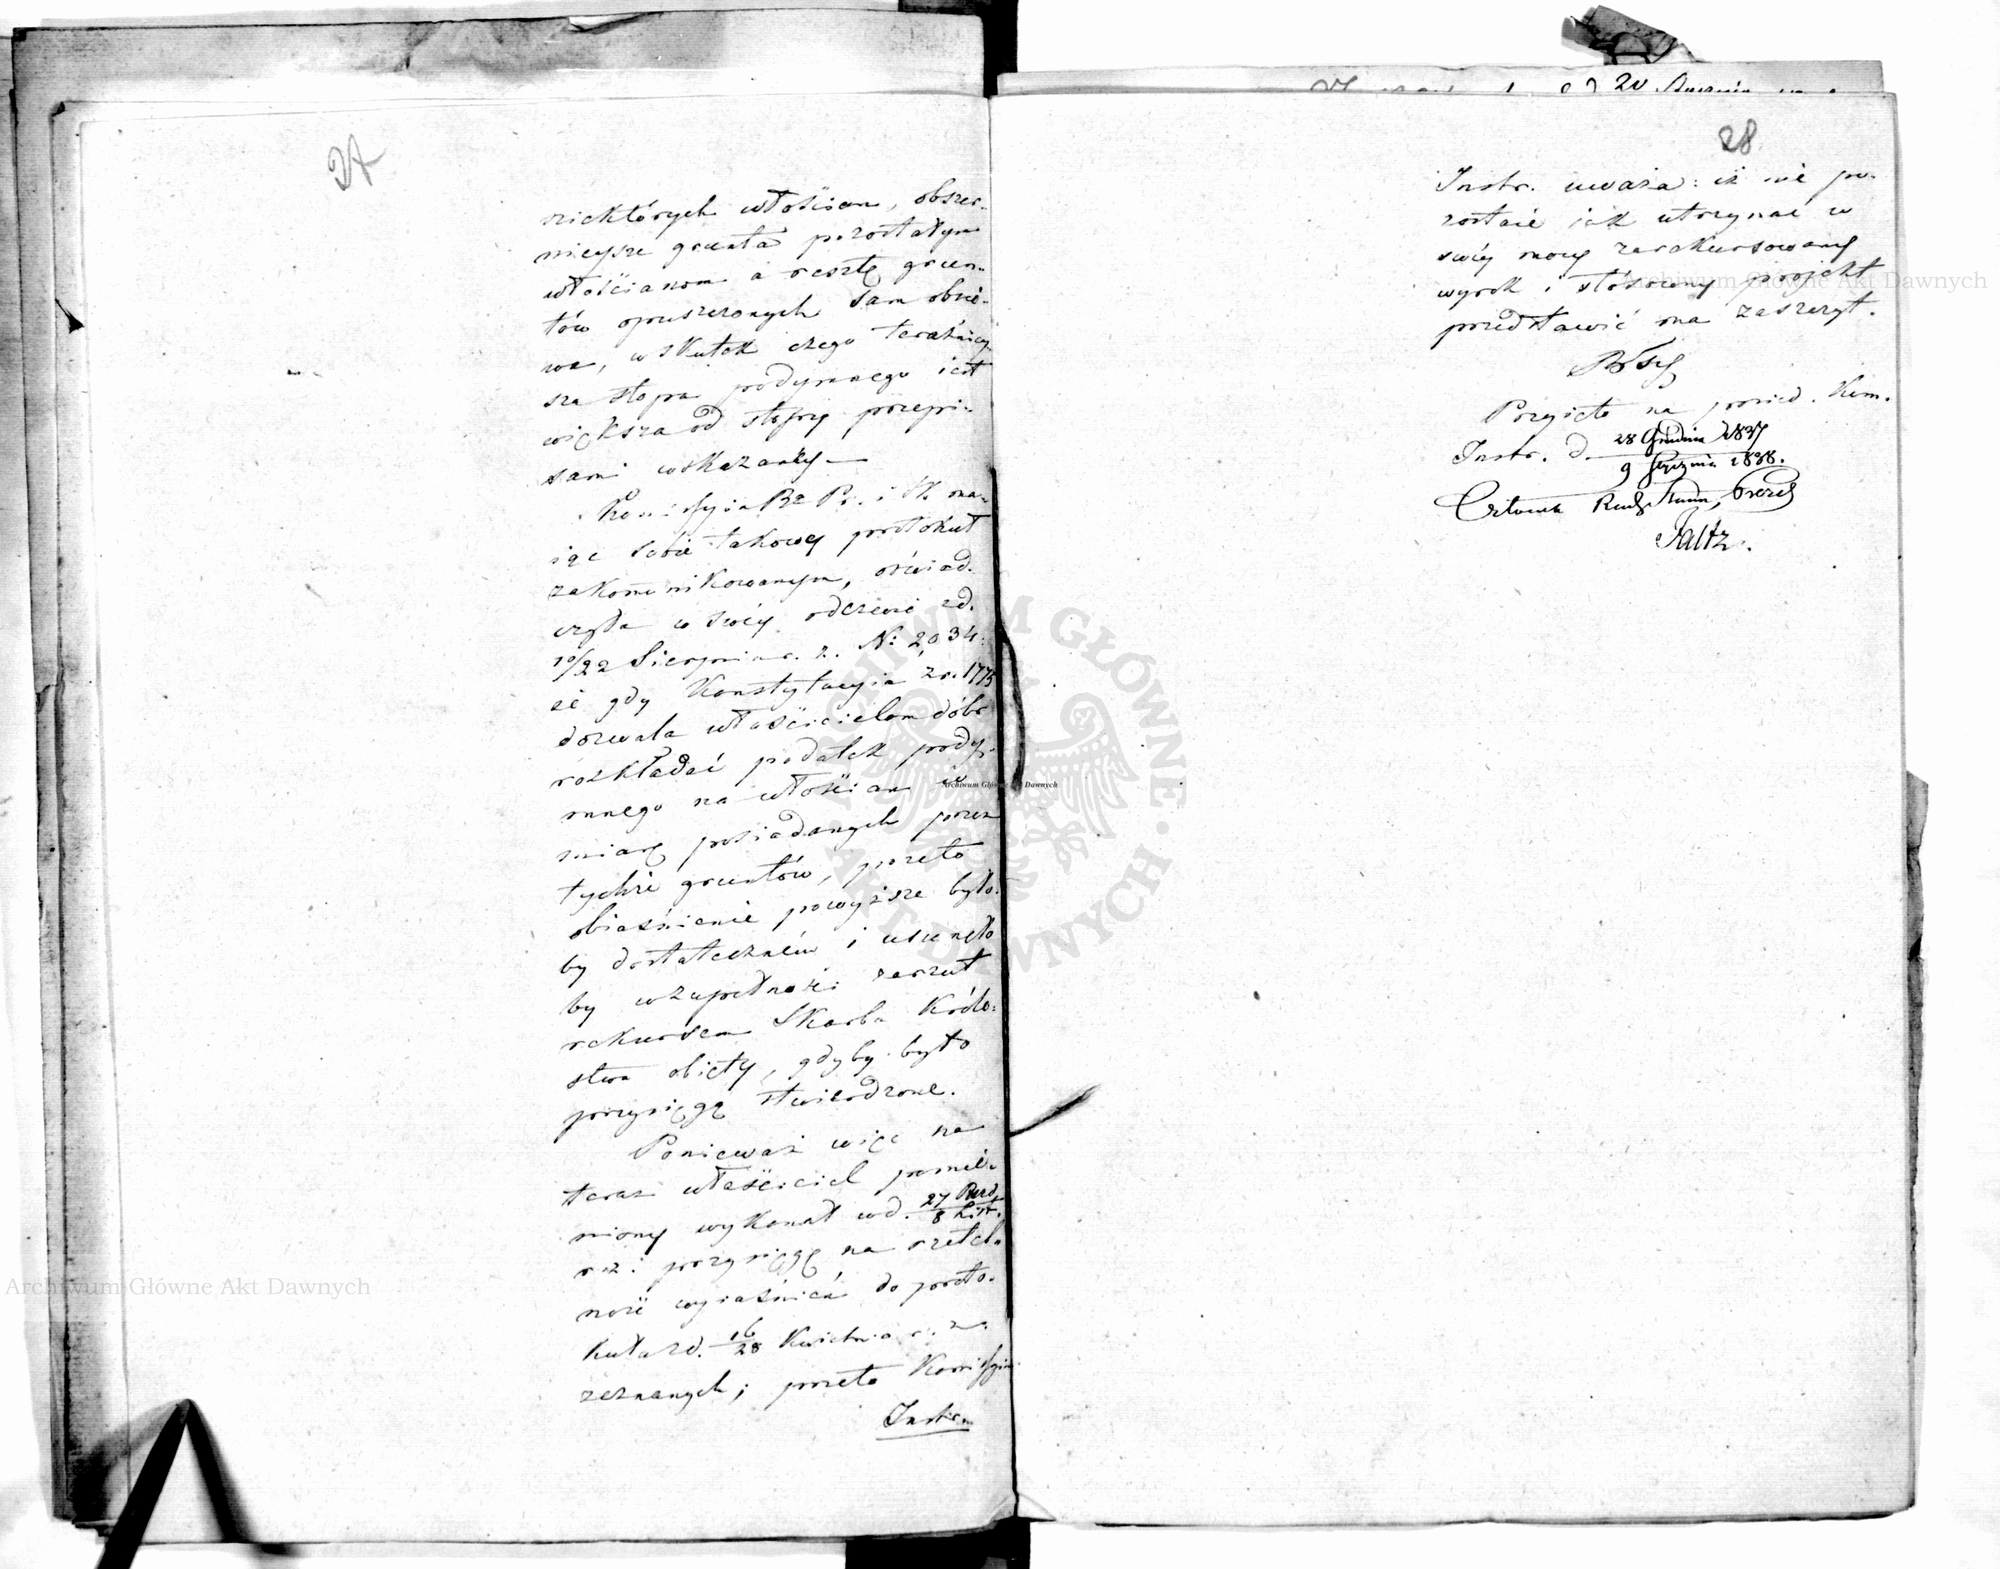 27
niektórych włościan, obszer-
niejsze grunta pozostałym
włościanom a resztę grun-
tów opuszczonych sam obsie-
wa, w skutek czego teraźniej-
sza stopa podymnego jest
większa od stopy przepi-
sami wskazanéj —
Kommissyia Rz. Pr. i Sk. ma-
jąc sobie takowy protokuł
zakommunikowanym, oświad-
czyła w swéj odezwie z d.
10/22 Sierpnia r. z. N: 2034.
że gdy Konstytucyia z r. 1775
dozwala właścicielom dóbr
rozkładać podatek pody-
mnego na włościan w
miarę posiadanych przez
tychże gruntów, przeto
obiaśnienie powyższe było-
by dostateczném i usunęło
by w zupełności zarzut
rekursem Skarbu Króle-
stwa obięty, gdyby było
przysięgą stwierdzone.
Ponieważ więc na
teraz właściciel pomie-
niony wykonał w d. 27 Paźd./8 List.
r. z. przysięgę na rzetel-
ność wyiaśnień do proto-
kułu z d. 16/28 Kwietnia r. z.
zeznanych; przeto Kommissyia
Instr.
20 Stycznia
28
Instr. uważa: iż nie po-
zostaie jak utrzymać w
swéj mocy zarekursowany
wyrok i stósowny projekt
przedstawić ma zaszczyt.
Przyięto na posied. Kom.
Instr. d. 28 Grudnia 1837/9 Stycznia 1838.
Członek Rady Stanu, Prezes
Faltz.
Archiwum Główne Akt Dawnych
Archiwum Główne Akt Dawnych
Archiwum Główne Akt Dawnych
ARCHIWUM GŁÓWNE · AKT DAWNYCH ·